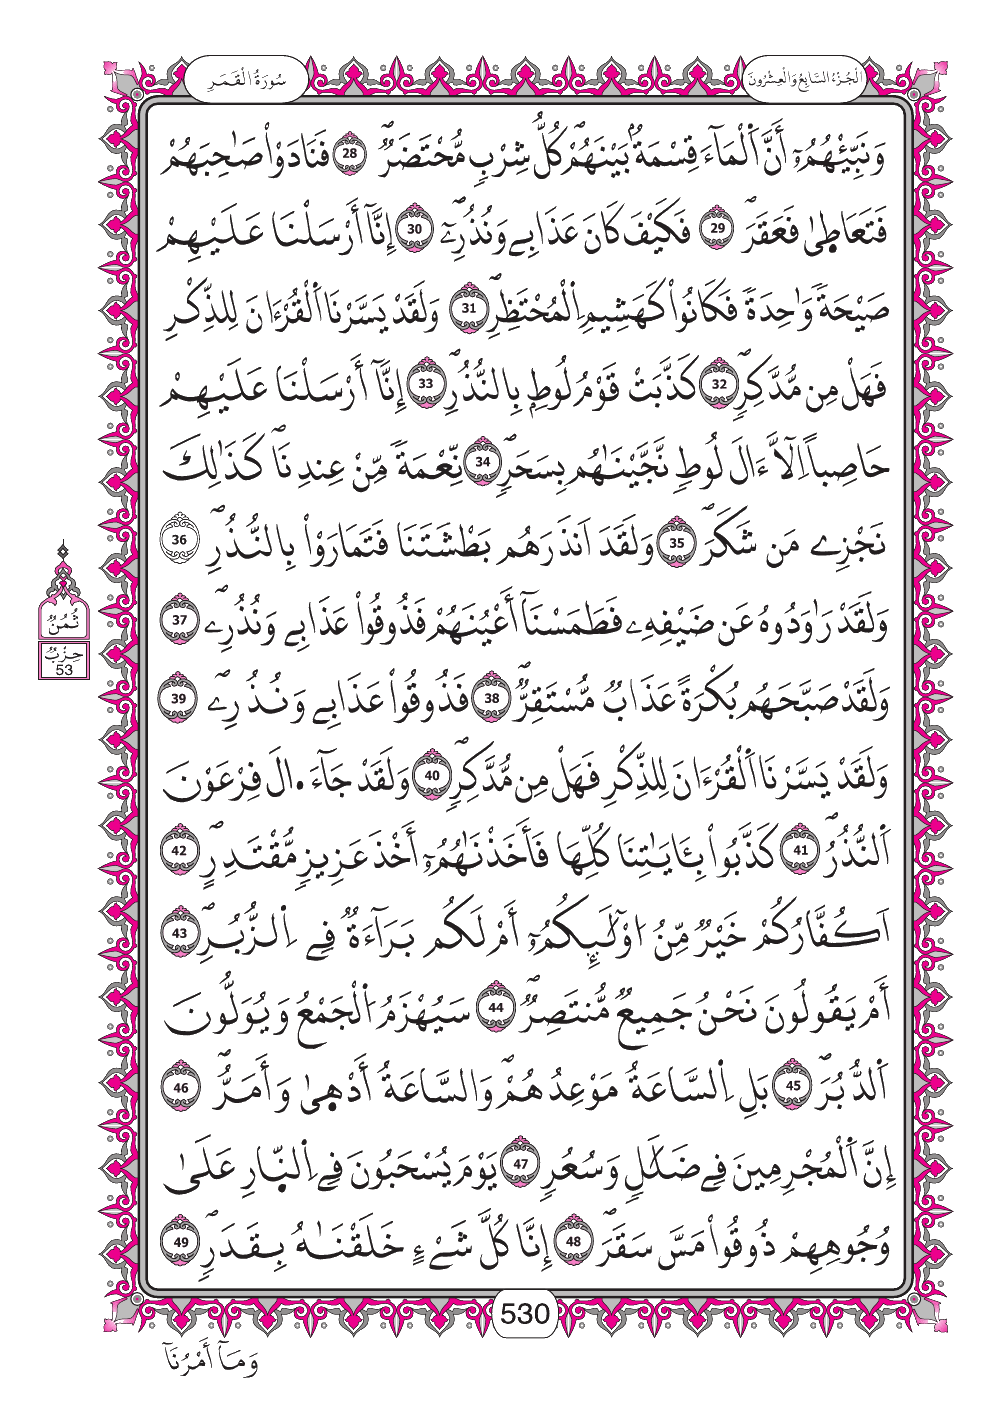 سُورَةُ الْقَمَرِ
الْجُزْءُ السَّابِعُ وَالْعِشْرُونَ
وَنَبِّئْهُمُۥٓ أَنَّ اَ۬لْمَآءَ قِسْمَةُۢ بَيْنَهُمْۖ كُلُّ شِرْبٖ مُّحْتَضَرٞۖ 28 فَنَادَوْاْ صَٰحِبَهُمْ
فَتَعَاط۪يٰ فَعَقَرَۖ 29 فَكَيْفَ كَانَ عَذَابِے وَنُذُرِۦٓۖ 30 إِنَّآ أَرْسَلْنَا عَلَيْهِمْ
صَيْحَةٗ وَٰحِدَةٗ فَكَانُواْ كَهَشِيمِ اِ۬لْمُحْتَظِرِۖ 31 وَلَقَدْ يَسَّرْنَا اَ۬لْقُرْءَانَ لِلذِّكْرِ
فَهَلْ مِن مُّدَّكِرٖۖ 32 كَذَّبَتْ قَوْمُ لُوطِۢ بِالنُّذُرِۖ 33 إِنَّآ أَرْسَلْنَا عَلَيْهِمْ
حَاصِباً اِلَّآ ءَالَ لُوطٖ نَّجَّيْنَٰهُم بِسَحَرٖۖ 34 نِّعْمَةٗ مِّنْ عِندِنَاۖ كَذَٰلِكَ
نَجْزِے مَن شَكَرَۖ 35 وَلَقَدَ اَنذَرَهُم بَطْشَتَنَا فَتَمَارَوْاْ بِالنُّذُرِۖ 36
وَلَقَدْ رَٰوَدُوهُ عَن ضَيْفِهِۦ فَطَمَسْنَآ أَعْيُنَهُمْ فَذُوقُواْ عَذَابِے وَنُذُرِۦۖ 37
وَلَقَدْ صَبَّحَهُم بُكْرَةً عَذَابٞ مُّسْتَقِرّٞۖ 38 فَذُوقُواْ عَذَابِے وَنُذُرِۦۖ 39
وَلَقَدْ يَسَّرْنَا اَ۬لْقُرْءَانَ لِلذِّكْرِ فَهَلْ مِن مُّدَّكِرٖۖ 40 وَلَقَدْ جَآءَ ا۬لَ فِرْعَوْنَ
اَ۬لنُّذُرُۖ 41 كَذَّبُواْ بِـَٔايَٰتِنَا كُلِّهَا فَأَخَذْنَٰهُمُۥٓ أَخْذَ عَزِيزٖ مُّقْتَدِرٍۖ 42
اَكُفَّارُكُمْ خَيْرٞ مِّنُ ا۟وْلَٰٓئِكُمُۥٓ أَمْ لَكُم بَرَآءَةٞ فِے اِ۬لزُّبُرِۖ 43
أَمْ يَقُولُونَ نَحْنُ جَمِيعٞ مُّنتَصِرٞۖ 44 سَيُهْزَمُ اُ۬لْجَمْعُ وَيُوَلُّونَ
اَ۬لدُّبُرَۖ 45 بَلِ اِ۬لسَّاعَةُ مَوْعِدُهُمْۖ وَالسَّاعَةُ أَدْه۪يٰ وَأَمَرُّۖ 46
إِنَّ اَ۬لْمُجْرِمِينَ فِے ضَلَٰلٖ وَسُعُرٖ 47 يَوْمَ يُسْحَبُونَ فِے اِ۬لنّ۪ارِ عَلَىٰ
وُجُوهِهِمْ ذُوقُواْ مَسَّ سَقَرَۖ 48 إِنَّا كُلَّ شَےْءٍ خَلَقْنَٰهُ بِقَدَرٖۖ 49
ثُمُنٌ
حِزْبٌ
53
530
وَمَآ أَمْرُنَآ